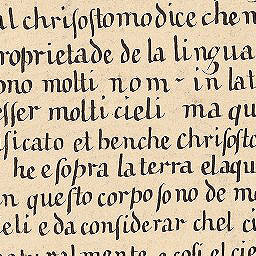 al chriſoſtomo dice che n
roprieta de de la lingua
ono molti nom~ in lat
eſſer molti cieli ma qu
ſicato et benche chriſoſto
he e ſopra la terra el aqu
n queſto corpo ſono de mo
ieli e da conſiderar chel ci
naturalmente e coſi el cie